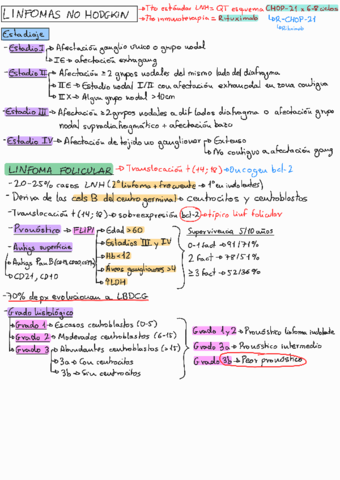 LINFOMAS NO HODGKIN
→ Tto estándar LNH = QT esquema CHOP-21 x 6-8 ciclos
→ Tto inmunoterapia = Rituximab ↳ R-CHOP-21
↳ Rituximab
Estadiaje
- Estadio I → Afectación ganglio único o grupo nodal
→ IE → afectación extragang
- Estadio II → Afectación ≥2 grupos nodales del mismo lado del diafragma
→ IIE → Estadio nodal I/II con afectación extranodal en zona contigua
→ IIX → Algún grupo nodal >10cm
- Estadio III → Afectación ≥2 grupos nodales a dif lados diafragma o afectación grupo
nodal supradiafragmático + afectación bazo
- Estadio IV → Afectación de tejido no ganglionar → Extenso
→ No contiguo a afectación gang
LINFOMA FOLICULAR → Translocación t(14;18) → Oncogen bcl-2
- 20-25% casos LNH (2º linfoma + frecuente → 1º en indolentes)
- Deriva de las cels B del centro germinal → centrocitos y centroblastos
- Translocación t(14;18) → sobreexpresión bcl-2 → típico linf folicular
- Pronóstico → FLIPI → Edad >60
→ Estadios III y IV
→ Hb <12
→ Áreas ganglionares >4
→ ↑LDH
Supervivencia 5/10 años
0-1 fact → 91/71%
2 fact → 78/51%
≥3 fact → 52/36%
- Antígs superficie
→ Antígs Pan B
→ CD21, CD10
- 70% de px evolucionan a LBDCG
- Grado histológico
→ Grado 1 → Escasos centroblastos (0-5)
→ Grado 2 → Moderados centroblastos (6-15)
→ Grado 3 → Abundantes centroblastos (>15)
→ 3a → Con centrocitos
→ 3b → Sin centrocitos
Grado 1 y 2 → Pronóstico linfoma indolente
Grado 3a → Pronóstico intermedio
Grado 3b → Peor pronóstico